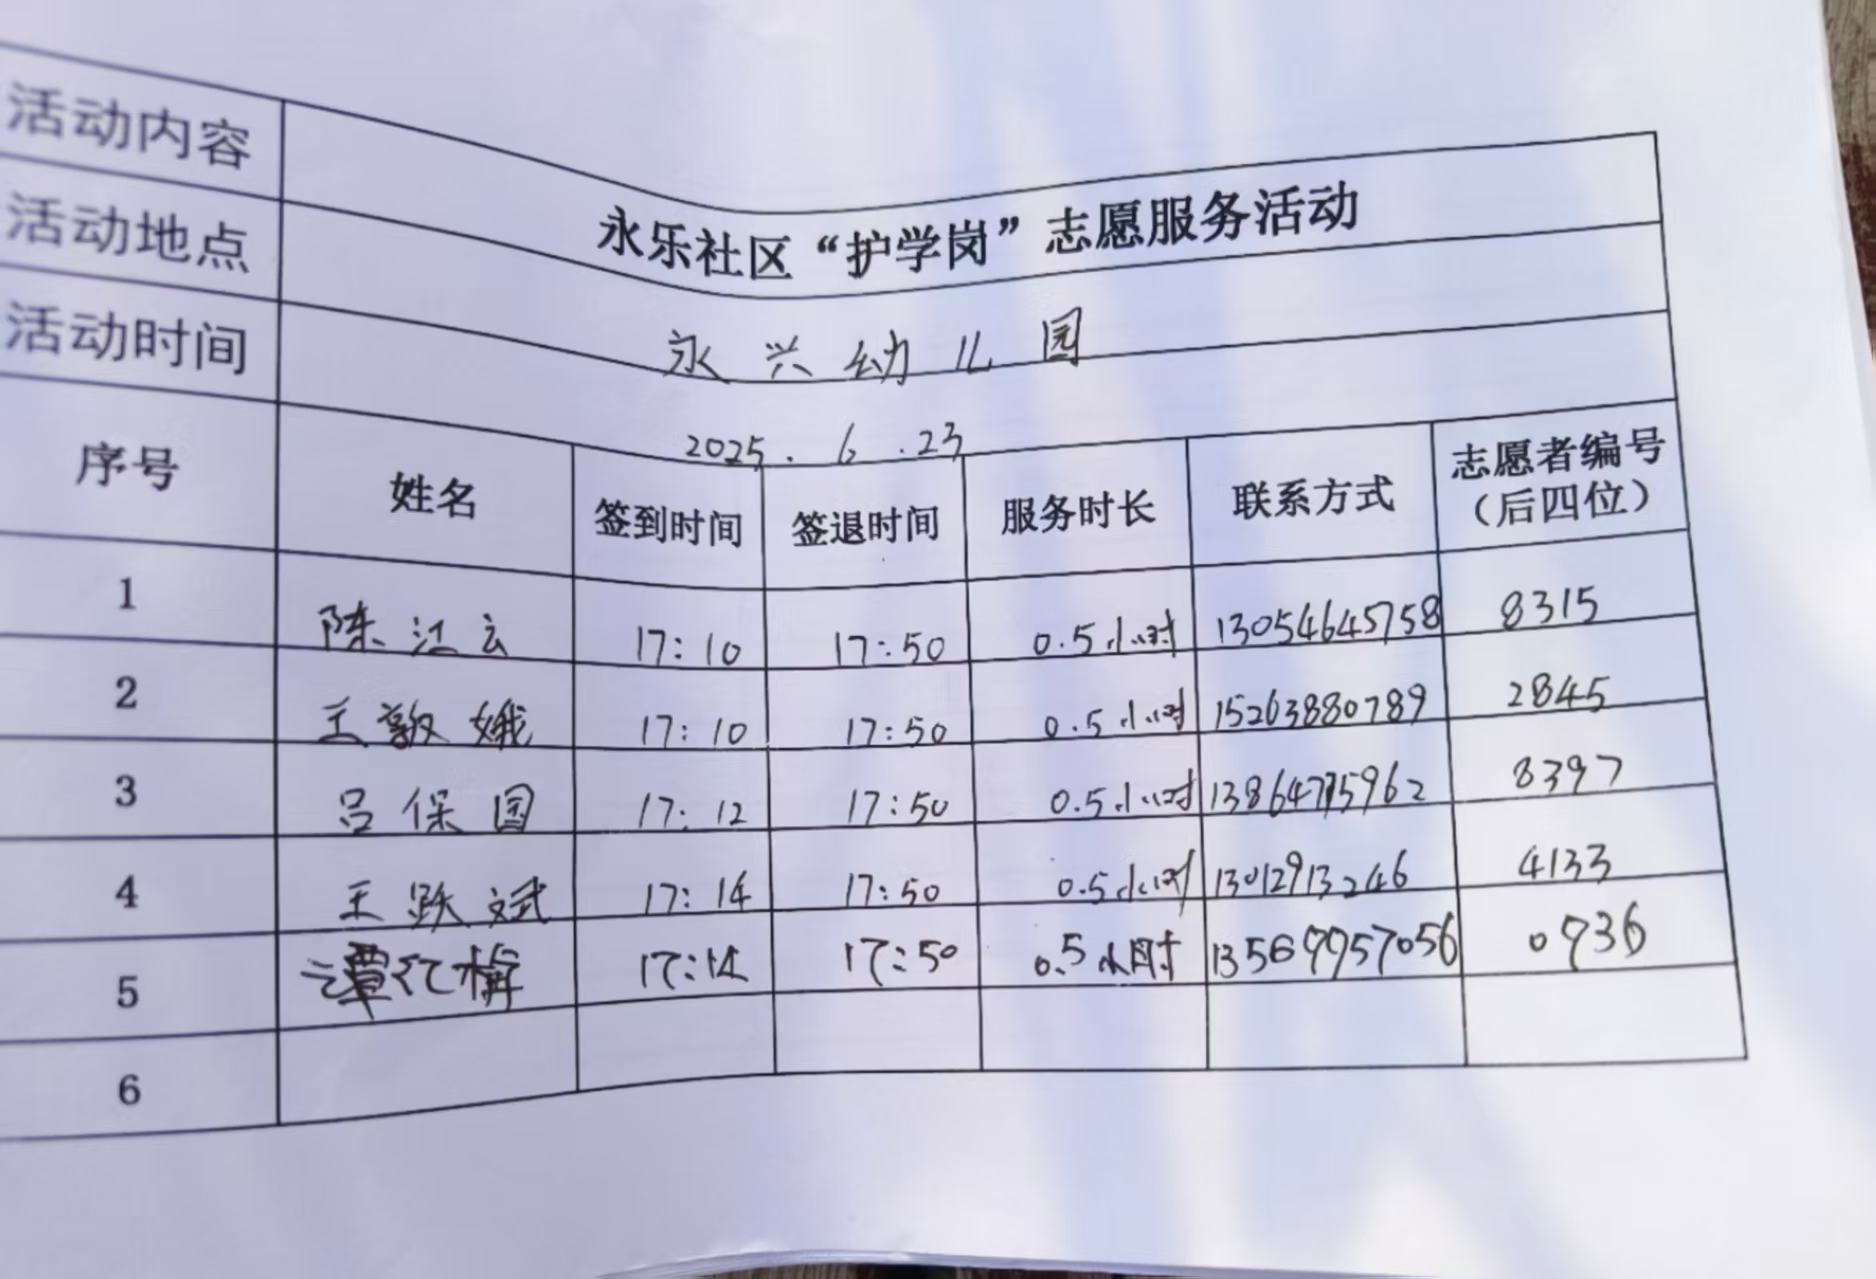 活动内容 永乐社区“护学岗”志愿服务活动
活动地点 永兴幼儿园
活动时间 2025.6.23
序号 姓名 签到时间 签退时间 服务时长 联系方式 志愿者编号（后四位）
1 陈江云 17:10 17:50 0.5小时 13054645758 8315
2 王敦娥 17:10 17:50 0.5小时 15263880789 2845
3 吕保国 17:12 17:50 0.5小时 8397
4 王跃斌 17:14 17:50 0.5小时 13012913246 4133
5 谭红梅 17:14 17:50 0.5小时 0936
6